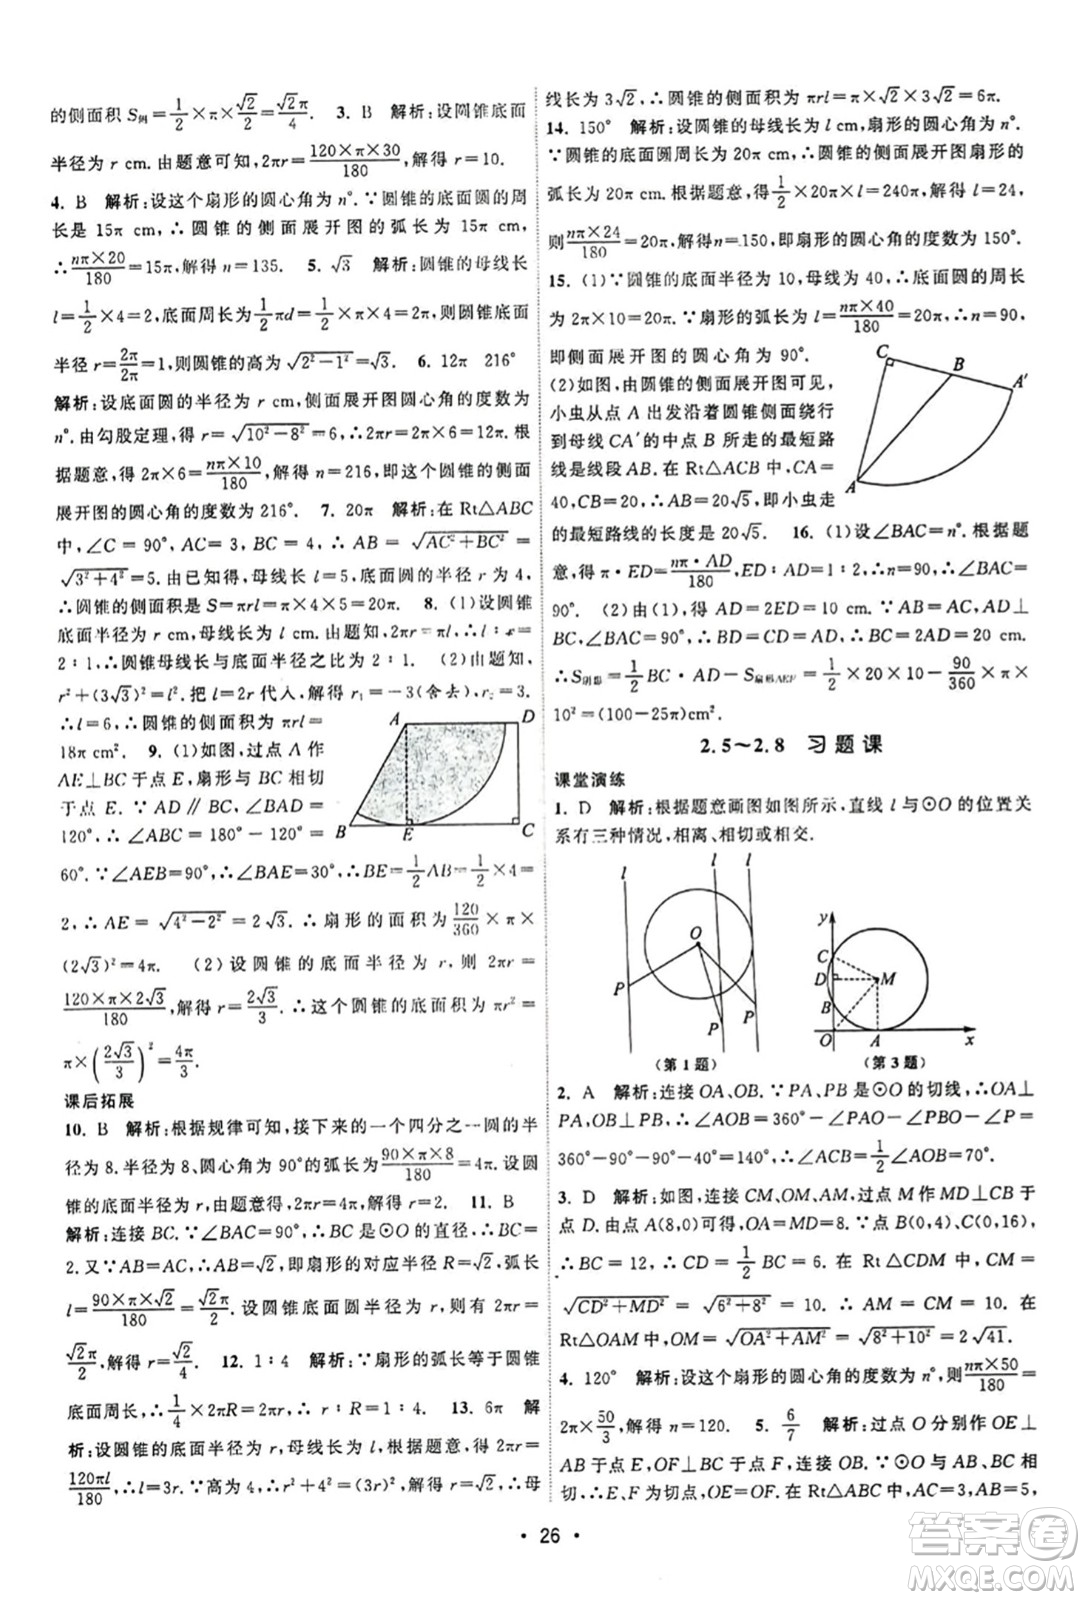 的侧面积 S侧=1/2×π×√2/2=√2π/4. 3. B 解析:设圆锥底面
半径为 r cm. 由题意可知, 2πr=120×π×30/180, 解得 r=10.
4. B 解析:设这个扇形的圆心角为 n°. ∵圆锥的底面圆的周
长是 15π cm, ∴圆锥的侧面展开图的弧长为 15π cm,
∴nπ×20/180=15π, 解得 n=135. 5. √3 解析:圆锥的母线长
l=1/2×4=2, 底面周长为1/2πd=1/2×4π=2π, 则圆锥底面
半径 r=2π/2π=1, 则圆锥的高为 √(2²-1²)=√3. 6. 12π 216°
解析:设底面圆的半径为 r cm, 侧面展开图圆心角的度数为
n°. 由勾股定理, 得 r=√(10²-8²)=6, ∴2πr=2π×6=12π. 根
据题意, 得 2π×6=nπ×10/180, 解得 n=216, 即这个圆锥的侧面
展开图的圆心角的度数为 216°. 7. 20π 解析:在 Rt△ABC
中, ∠C=90°, AC=3, BC=4, ∴AB=√(AC²+BC²)=
√(3²+4²)=5. 由已知得, 母线长 l=5, 底面圆的半径 r=4,
∴圆锥的侧面积是 S=πrl=π×4×5=20π. 8. (1)设圆锥
底面半径为 r cm, 母线长为 l cm. 由题知, 2πr=πl, ∴l∶r=
2∶1, ∴圆锥母线长与底面半径之比为 2∶1. (2)由题知,
r²+(3√3)²=l². 把 l=2r 代入, 解得 r₁=-3(舍去), r₂=3.
∴l=6, ∴圆锥的侧面积为 πrl=
18π cm². 9. (1)如图, 过点 A 作
AE⊥BC 于点 E, 扇形与 BC 相切
于点 E. ∵AD∥BC, ∠BAD=
120°, ∴∠ABC=180°-120°=
A
D
B
E
C
60°. ∵∠AEB=90°, ∴∠BAE=30°, ∴BE=1/2AB=1/2×4=
2, ∴AE=√(4²-2²)=2√3, ∴扇形的面积为120/360×π×
(2√3)²=4π. (2)设圆锥的底面半径为 r, 则 2πr=
120×π×2√3/180, 解得 r=2√3/3, ∴这个圆锥的底面积为 πr²=
π×(2√3/3)²=4π/3.
课后拓展
10. B 解析:根据规律可知, 接下来的一个四分之一圆的半
径为 8. 半径为 8、圆心角为 90°的弧长为90×π×8/180=4π. 设圆
锥的底面半径为 r, 由题意得, 2πr=4π, 解得 r=2. 11. B
解析:连接 BC. ∵∠BAC=90°, ∴BC 是⊙O 的直径, ∴BC=
2. 又∵AB=AC, ∴AB=√2, 即扇形的对应半径 R=√2, 弧长
l=90×π×√2/180=√2π/2. 设圆锥底面圆半径为 r, 则有 2πr=
√2π/2, 解得 r=√2/4. 12. 1∶4 解析:∵扇形的弧长等于圆锥
底面周长, ∴1/4×2πR=2πr, ∴r∶R=1∶4. 13. 6π 解
析:设圆锥的底面半径为 r, 母线长为 l, 则 2πr=
120πl/180, ∴l=3r. ∵高为 4, ∴r²+4²=(3r)², ∴r=√2, ∴母
线长为 3√2, ∴圆锥的侧面积为 πrl=π×√2×3√2=6π.
14. 150° 解析:设圆锥的母线长为 l cm, 扇形的圆心角为 n°.
∵圆锥的底面圆周长为 20π cm, ∴圆锥的侧面展开扇形的
弧长为 20π cm. 根据题意, 得1/2×20π×l=240π, 解得 l=24,
则nπ×24/180=20π, 解得 n=150, 即扇形的圆心角的度数为 150°.
15. (1)∵圆锥的底面半径为 10, 母线为 40, ∴底面圆的周长
为 2π×10=20π. ∵扇形的弧长为nπ×40/180=20π, ∴n=90,
即侧面展开图的圆心角为 90°.
(2)如图, 由圆锥的侧面展开图可见,
小虫从点 A 出发沿着圆锥侧面绕行
到母线 CA′的中点 B 所走的最短路
线是线段 AB. 在 Rt△ACB 中, CA=
40, CB=20, ∴AB=20√5, 即小虫走
的最短路线的长度是 20√5. 16. (1)设∠BAC=n°. 根据题
C
B
A′
A
意, 得 π·ED=nπ·AD/180. ∵AD=2ED, ∴n=90, ∴∠BAC=
90°. (2)由(1), 得 AD=2ED=10(cm). ∵AB=AC, AD⊥
BC, ∠BAC=90°, ∴BC=2AD=20 cm.
∴S阴影=1/2BC·AD-S扇形AEF=1/2×20×10-90/360×π×
10²=(100-25π)cm².
2.5~2.8 习题课
课堂演练
1. D 解析:根据题意画图如图所示, 直线 l 与⊙O 的位置关
系有三种情况, 相离、相切或相交.
l
l
l
O
P
P
P
(第 1 题)
y
C
D
B
M
O
A
x
(第 3 题)
2. A 解析:连接 OA、OB. ∵PA、PB 是⊙O 的切线, ∴OA⊥
PA, OB⊥PB, ∴∠AOB=360°-∠PAO-∠PBO-∠P=
360°-90°-90°-40°=140°, ∴∠C=1/2∠AOB=70°.
3. D 解析:如图, 连接 CM、OM、AM, 过点 M 作 MD⊥CB于
点 D. 由点 A(8,0)可得, OA=MD=8. ∵点 B(0,4)、C(0,16),
∴BC=12, ∴CD=1/2BC=6. 在 Rt△CDM 中, CM=
√(CD²+MD²)=√(6²+8²)=10, ∴AM=CM=10. 在
Rt△OAM 中, OM=√(OA²+AM²)=√(8²+10²)=2√41.
4. 120° 解析:设这个扇形的圆心角的度数为 n°, 则nπ×50/180=
2π×50/3, 解得 n=120. 5. 6/7 解析:过点 O 分别作 OE⊥
AB 于点 E, OF⊥BC 于点 F. ∵⊙O 与 AB、BC 相
切, ∴E、F 为切点, OE=OF. 在 Rt△ABC 中, AB=5,
· 26 ·
答案卷
MXQE.COM